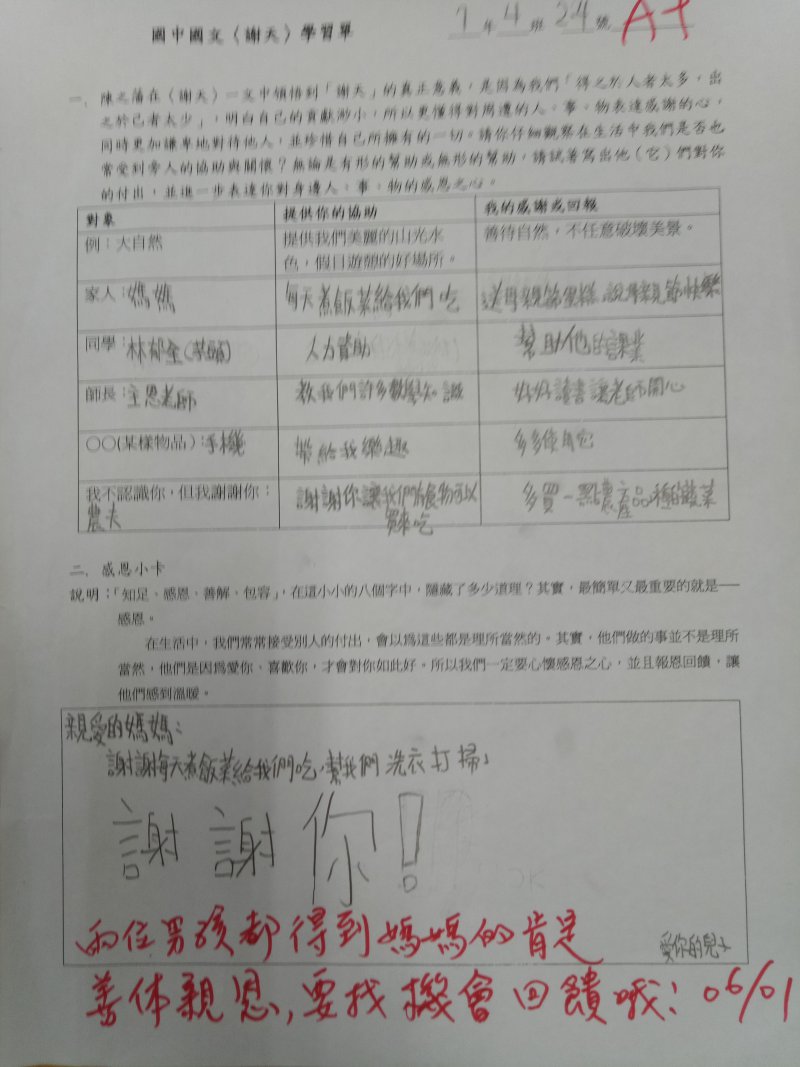 國中國文〈謝天〉學習單
7年4班24號 A+
一、陳之藩在〈謝天〉一文中領悟到「謝天」的真正意義，是因為我們「得之於人者太多，出
之於己者太少」，明白自己的貢獻渺小，所以更懂得對周遭的人、事、物表達感謝的心，
同時更加謙卑地對待他人，並珍惜自己所擁有的一切。請你仔細觀察在生活中我們是否也
常受到旁人的協助與關懷？無論是有形的幫助或無形的幫助，請試著寫出他（它）們對你
的付出，並進一步表達你對身邊人、事、物的感恩之心。
對象 提供你的協助 我的感謝或回報
例：大自然 提供我們美麗的山光水 善待自然，不任意破壞美景。
色，假日遊憩的好場所。
家人：媽媽 每天煮飯菜給我們吃 送母親節蛋糕，說母親節快樂
同學：林郁全 人力資助 幫助他的課業
師長：主恩老師 教我們許多數學知識 好好讀書讓老師開心
〇〇(某樣物品)：手機 帶給我樂趣 多多使用它
我不認識你，但我謝謝你： 謝謝你讓我們有食物可以 多買一點農產品種的蔬菜
農夫 買來吃
二、感恩小卡
說明：「知足、感恩、善解、包容」，在這小小的八個字中，隱藏了多少道理？其實，最簡單又最重要的就是──
感恩。
在生活中，我們常常接受別人的付出，會以為這些都是理所當然的。其實，他們做的事並不是理所
當然，他們是因為愛你、喜歡你，才會對你如此好。所以我們一定要心懷感恩之心，並且報恩回饋，讓
他們感到溫暖。
親愛的媽媽：
謝謝每天煮飯菜給我們吃，幫我們洗衣打掃，
謝謝你！
兩位男孩都得到媽媽的肯定
愛你的兒子
善体親恩，要找機會回饋哦！06/01